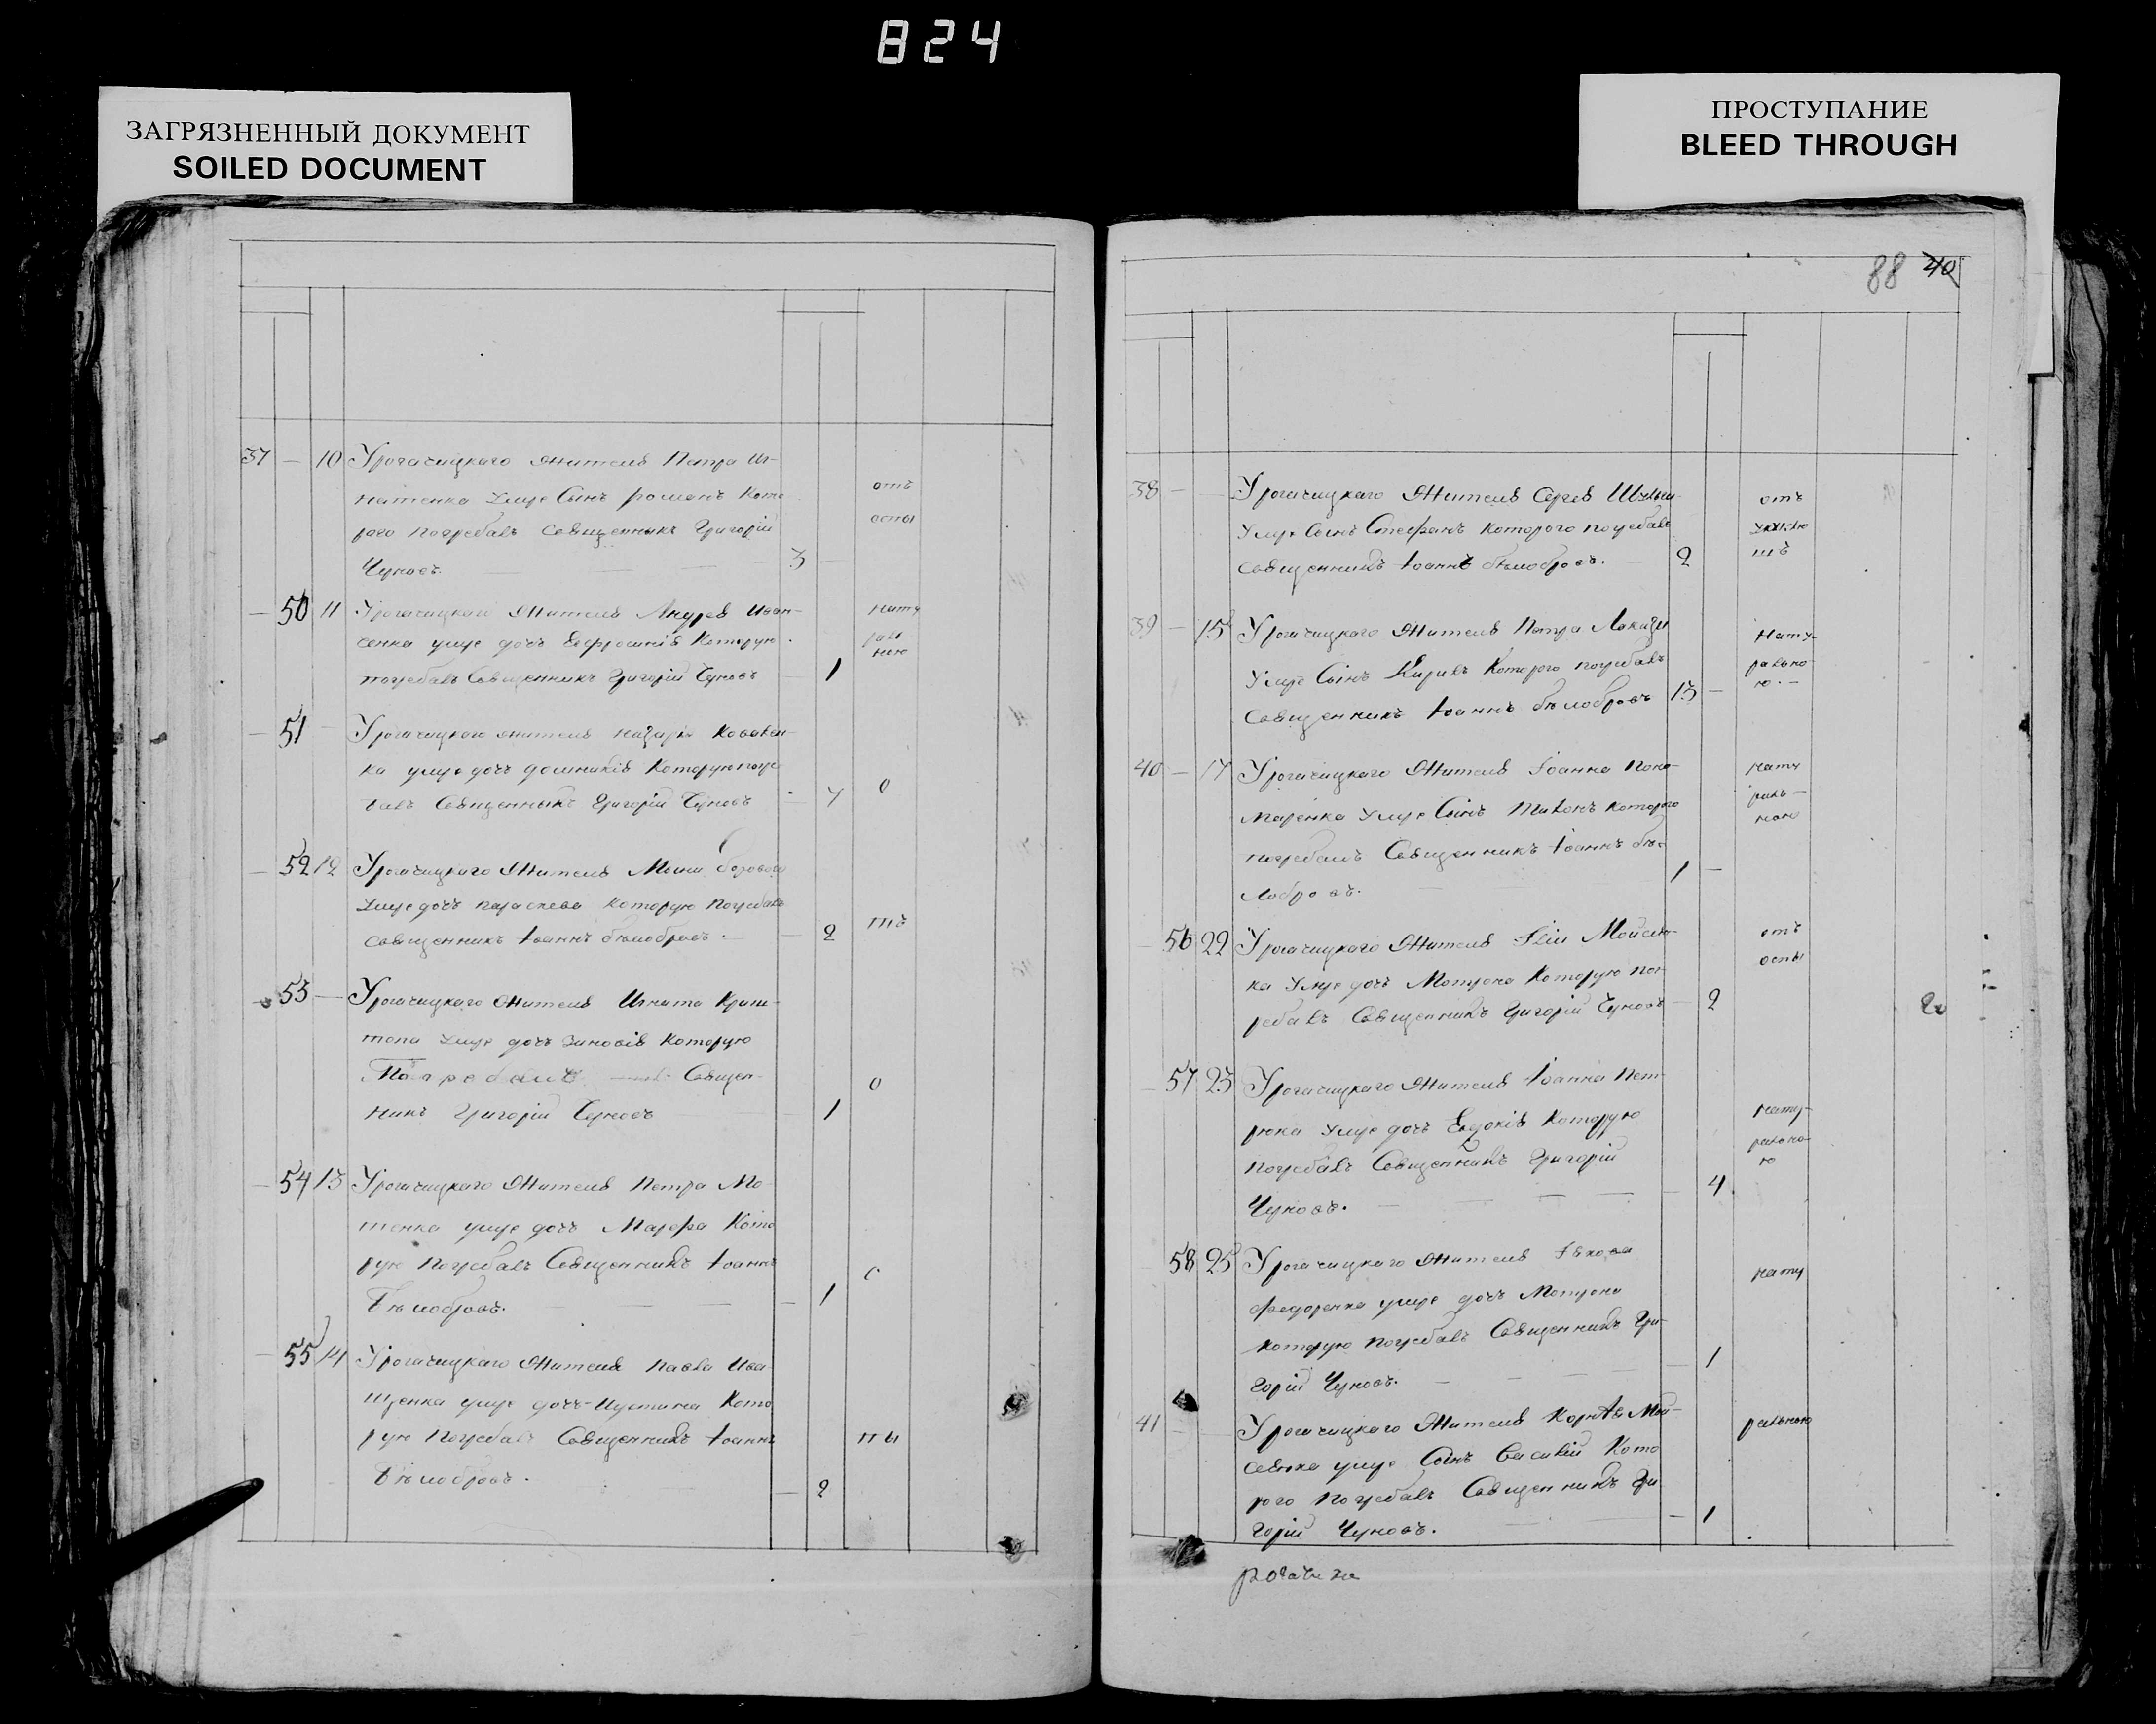 824
ЗАГРЯЗНЕННЫЙ ДОКУМЕНТ
SOILED DOCUMENT
ПРОСТУПАНИЕ
BLEED THROUGH
37 — 10 Урогачицкаго Жителя Петра Иг-
натенка умре Сынъ романъ Кото отъ
рого погребалъ Священникъ Григорій осты
Чуновъ. 3 —
— 50 11 Урогачицкаго Жителя Андрея Иван- нату
ченка умре дочь Евфросинія Которую раль
погребалъ Священникъ Григорій Чуновъ — 1 ною
— 51 — Урогачицкаго жителя назарія Ковален-
ка умре дочь домникія Которую погре
балъ Священникъ Григорій Чуновъ о
— 52 12 Урогачицкаго Жителя
умре дочь параскева которую погребалъ
священникъ Іоаннъ бѣлобровъ. — 2 тъ
— 53 — Урогачицкаго Жителя Игната
умре дочь зиновія Которую
Погребалъ Священ- о
никъ Григорій Чуновъ — 1
— 54 13 Урогачицкаго Жителя Петра Мо-
тенка умре дочь Марфа Кото
рую погребалъ Священникъ Іоаннъ
Бѣлобровъ. — 1
— 55 14 Урогачицкаго Жителя павла Ива-
щенка умре дочь Иустина Кото
рую погребалъ Священникъ Іоаннъ пы
Бѣлобровъ. — 2
88 40
38 — Урогачицкаго Жителя Сергея отъ
умре Сынъ Стефанъ которого погребалъ
священникъ Іоаннъ бѣлобровъ. — 2 шъ
39 — 15 Урогачицкаго Жителя Петра Лакизы Нату-
умре Сынъ Кирилъ Которого погребалъ рально
Священникъ Іоаннъ бѣлобровъ 13 — ю. —
40 — 17 Урогачицкаго Жителя Іоанна Поно- нату
маренка умре Сынъ которого раль —
погребалъ Священникъ Іоаннъ бѣ- ною
лобровъ. 1 —
— 56 22 Урогачицкаго Жителя Іліи Мойсѣн- отъ
ка умре дочь Мотрона Которую пог- оспы
ребалъ Священникъ Григорій Чуновъ — 2
— 57 23 Урогачицкаго Жителя Іоанна Пет-
рюка умре дочь Евдокія Которую нату-
погребалъ Священникъ Григорій рально
Чуновъ. — 4 ю
58 25 Урогачицкаго Жителя Іякова нату
федоренка умре дочь Мотрона
которую погребалъ Священникъ Гри-
горій Чуновъ. — 1
41 — Урогачицкаго Жителя Корнѣя Мой- ральною
сѣнка умре Сынъ Василій Кото
рого погребалъ Священникъ Гри
горій Чуновъ. — 1
рогачика